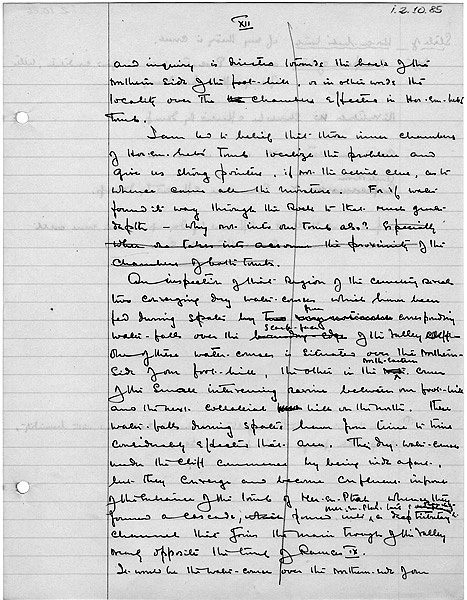 i.2.10.85
XII
and inquiry is directed towards the back of the
northern side of the foot-hill, or in other words the
locality over the chambers effected in Hor.em.heb's
tomb.
I am led to belief that those inner chambers
of Hor.em.heb's tomb localize the problem and
give us strong pointers, if not the actual clue, as to
whence came all the moisture. For if water
found its way through the rock to that much greater
depth – why not into our tomb also? Especially
when one takes into account the proximity of the
chambers of both tombs.
An inspection of this region of the cemetery reveals
two converging dry water-courses which have been
fed during spates by two corresponding
water-falls over the of the Valley cliff.
One of these water-courses is situated over the northern-
side of our foot-hill, the other in the north-eastern corner
of the small intervening ravine between our foot-hill
and the next collateral hill on the north. These
water-falls during spates have from time to time
considerably effected that area. The dry water-courses
under the cliff commence by being wide apart,
but they converge and become confluent in front
of the entrance of the tomb of Mer.en.Ptah, whence they
formed a cascade, which joined a deep tributary
channel that joins the main trough of the Valley
nearly opposite the tomb of Rameses IX.
It would be the water-course over the northern-side of our